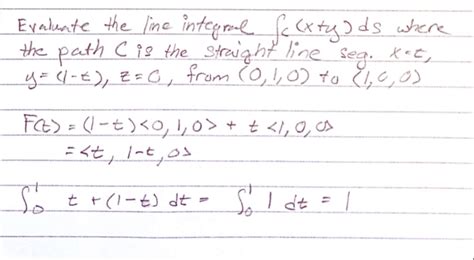 Evaluate the line integral ∫c(x+y)ds where
the path C is the straight line seg. x=t,
y=(1-t), z=0, from (0,1,0) to (1,0,0)
r(t) = (1-t)<0,1,0> + t<1,0,0>
=<t, 1-t, 0>
∫₀¹ t+(1-t) dt = ∫₀¹ 1 dt = 1